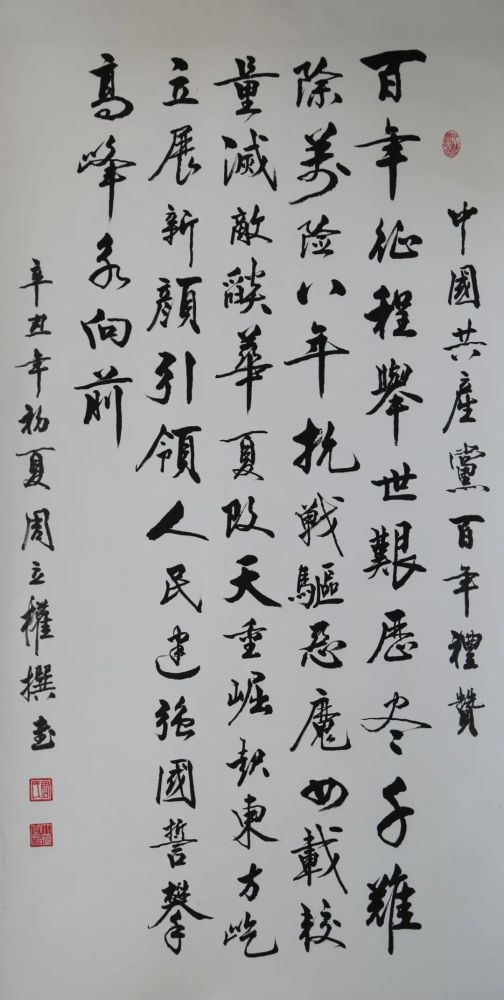 中國共產黨百年禮贊
百年征程舉世艱歷尽千難
除萬险八年抗戰驅惡魔四載較
量滅敵燄華夏改天重崛起東方屹
立展新顏引領人民建強國誓攀
高峰永向前
辛丑年初夏周立權撰書